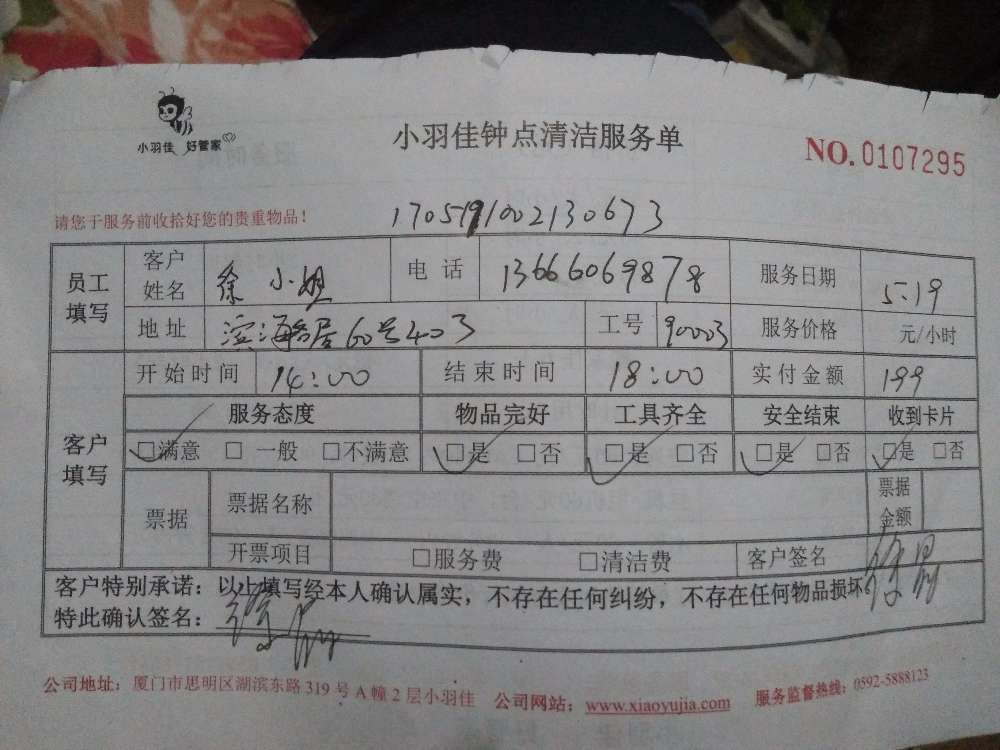 小羽佳 好管家
小羽佳钟点清洁服务单
NO.0107295
请您于服务前收拾好您的贵重物品！
1705191002130673
员工填写 客户姓名 徐小姐 电话 13666069878 服务日期 5.19
地址 滨海名居60号403 工号 90003 服务价格 元/小时
客户填写 开始时间 14:00 结束时间 18:00 实付金额 199
服务态度 物品完好 工具齐全 安全结束 收到卡片
☑满意 □一般 □不满意 ☑是 □否 ☑是 □否 ☑是 □否 ☑是 □否
票据 票据名称 票据金额
开票项目 □服务费 □清洁费 客户签名
客户特别承诺：以上填写经本人确认属实，不存在任何纠纷，不存在任何物品损坏
特此确认签名：
公司地址：厦门市思明区湖滨东路319号A幢2层小羽佳 公司网站：www.xiaoyujia.com 服务监督热线：0592-5888123